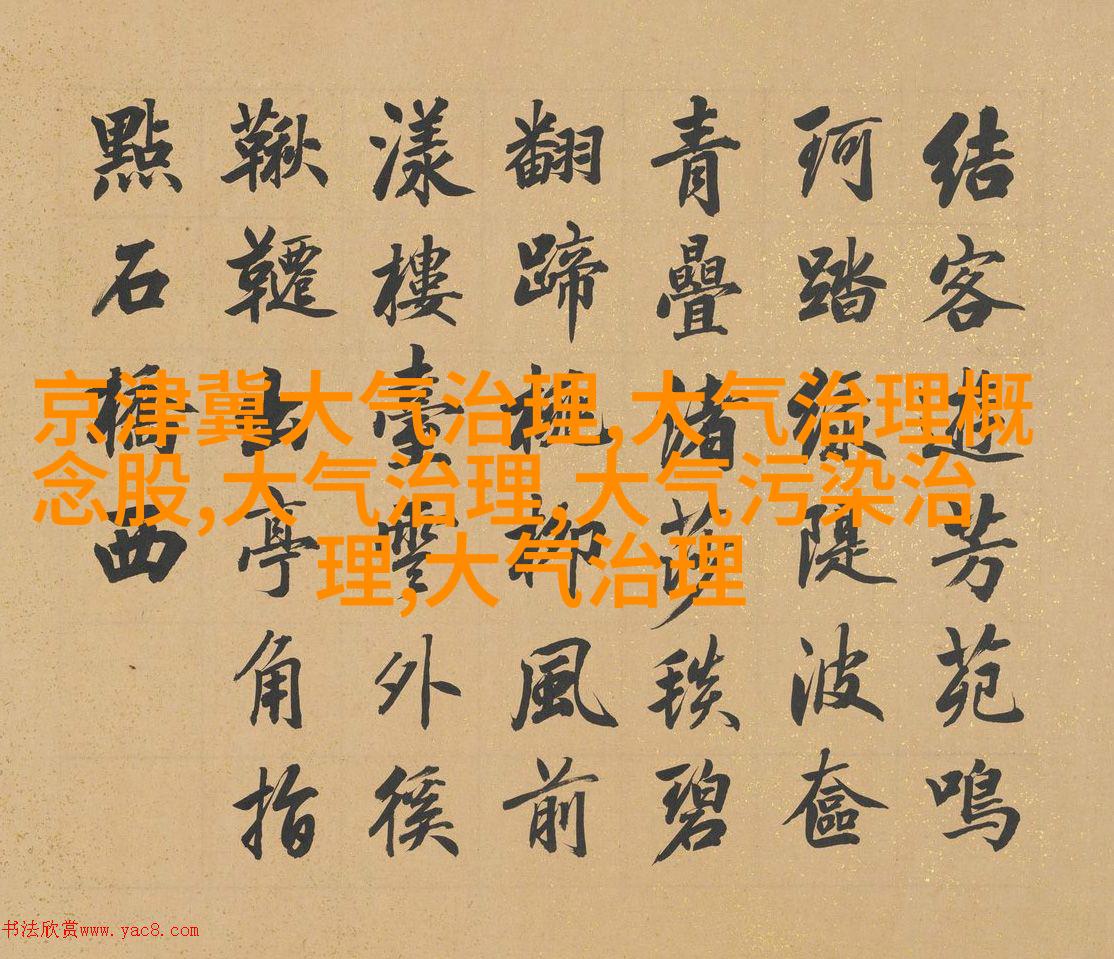 結客遊芳苑鳴
珂踏綠隄波奩
青疊渚莎毯碧
翻蹄桃柳風前
漾樓臺外徯
鞦韆山亭角指
點石橋西
京津冀大气治理,大气治理概
念股,大气治理,大气污染治
理,大气治理
书法欣赏www.yac8.com